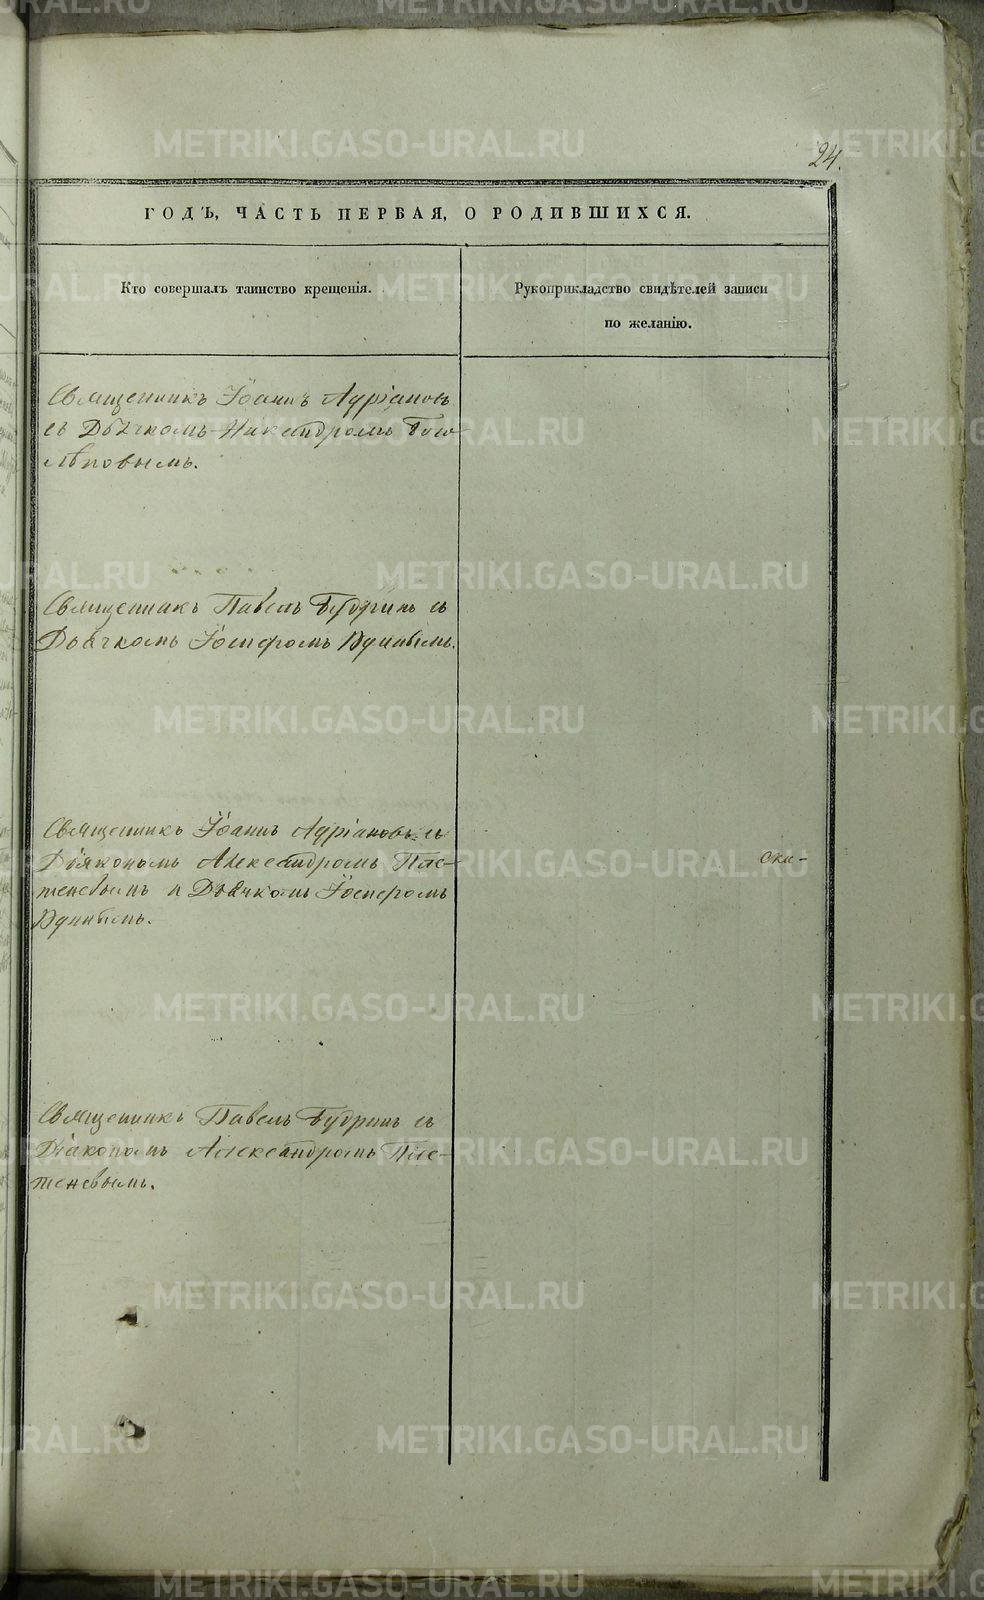 24.
ГОДЪ, ЧАСТЬ ПЕРВАЯ, О РОДИВШИХСЯ.
Кто совершалъ таинство крещенія.
Рукоприкладство свидѣтелей записи
по желанію.
Священникъ Іоаннъ Адріановъ
съ Дьячкомъ Никандромъ Бого-
лѣповымъ.
Священникъ Павелъ Будринъ съ
Дьячкомъ Іосифомъ
Священникъ Іоаннъ Адріановъ съ
Діякономъ Александромъ Пле-
теневымъ и Дьячкомъ Іосифомъ
ски-
Священникъ Павелъ Будринъ съ
Діакономъ Александромъ Пле-
теневымъ.
METRIKI.GASO-URAL.RU